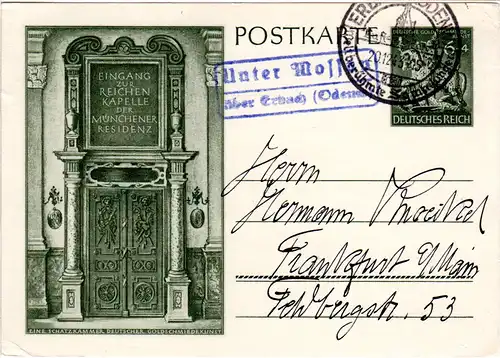 POSTKARTE
ERBACH (ODENW
Unter Mossau
über Erbach (Odenw
DEUTSCHE GOLDSCHMIEDEKUNST
6+4
DEUTSCHES REICH
EINGANG ZUR
REICHEN
KAPELLE
DER
MÜNCHENER
RESIDENZ
EINE SCHATZKAMMER DEUTSCHER GOLDSCHMIEDEKUNST
Herrn
Hermann
Frankfurt a/Main
Feldbergstr. 53